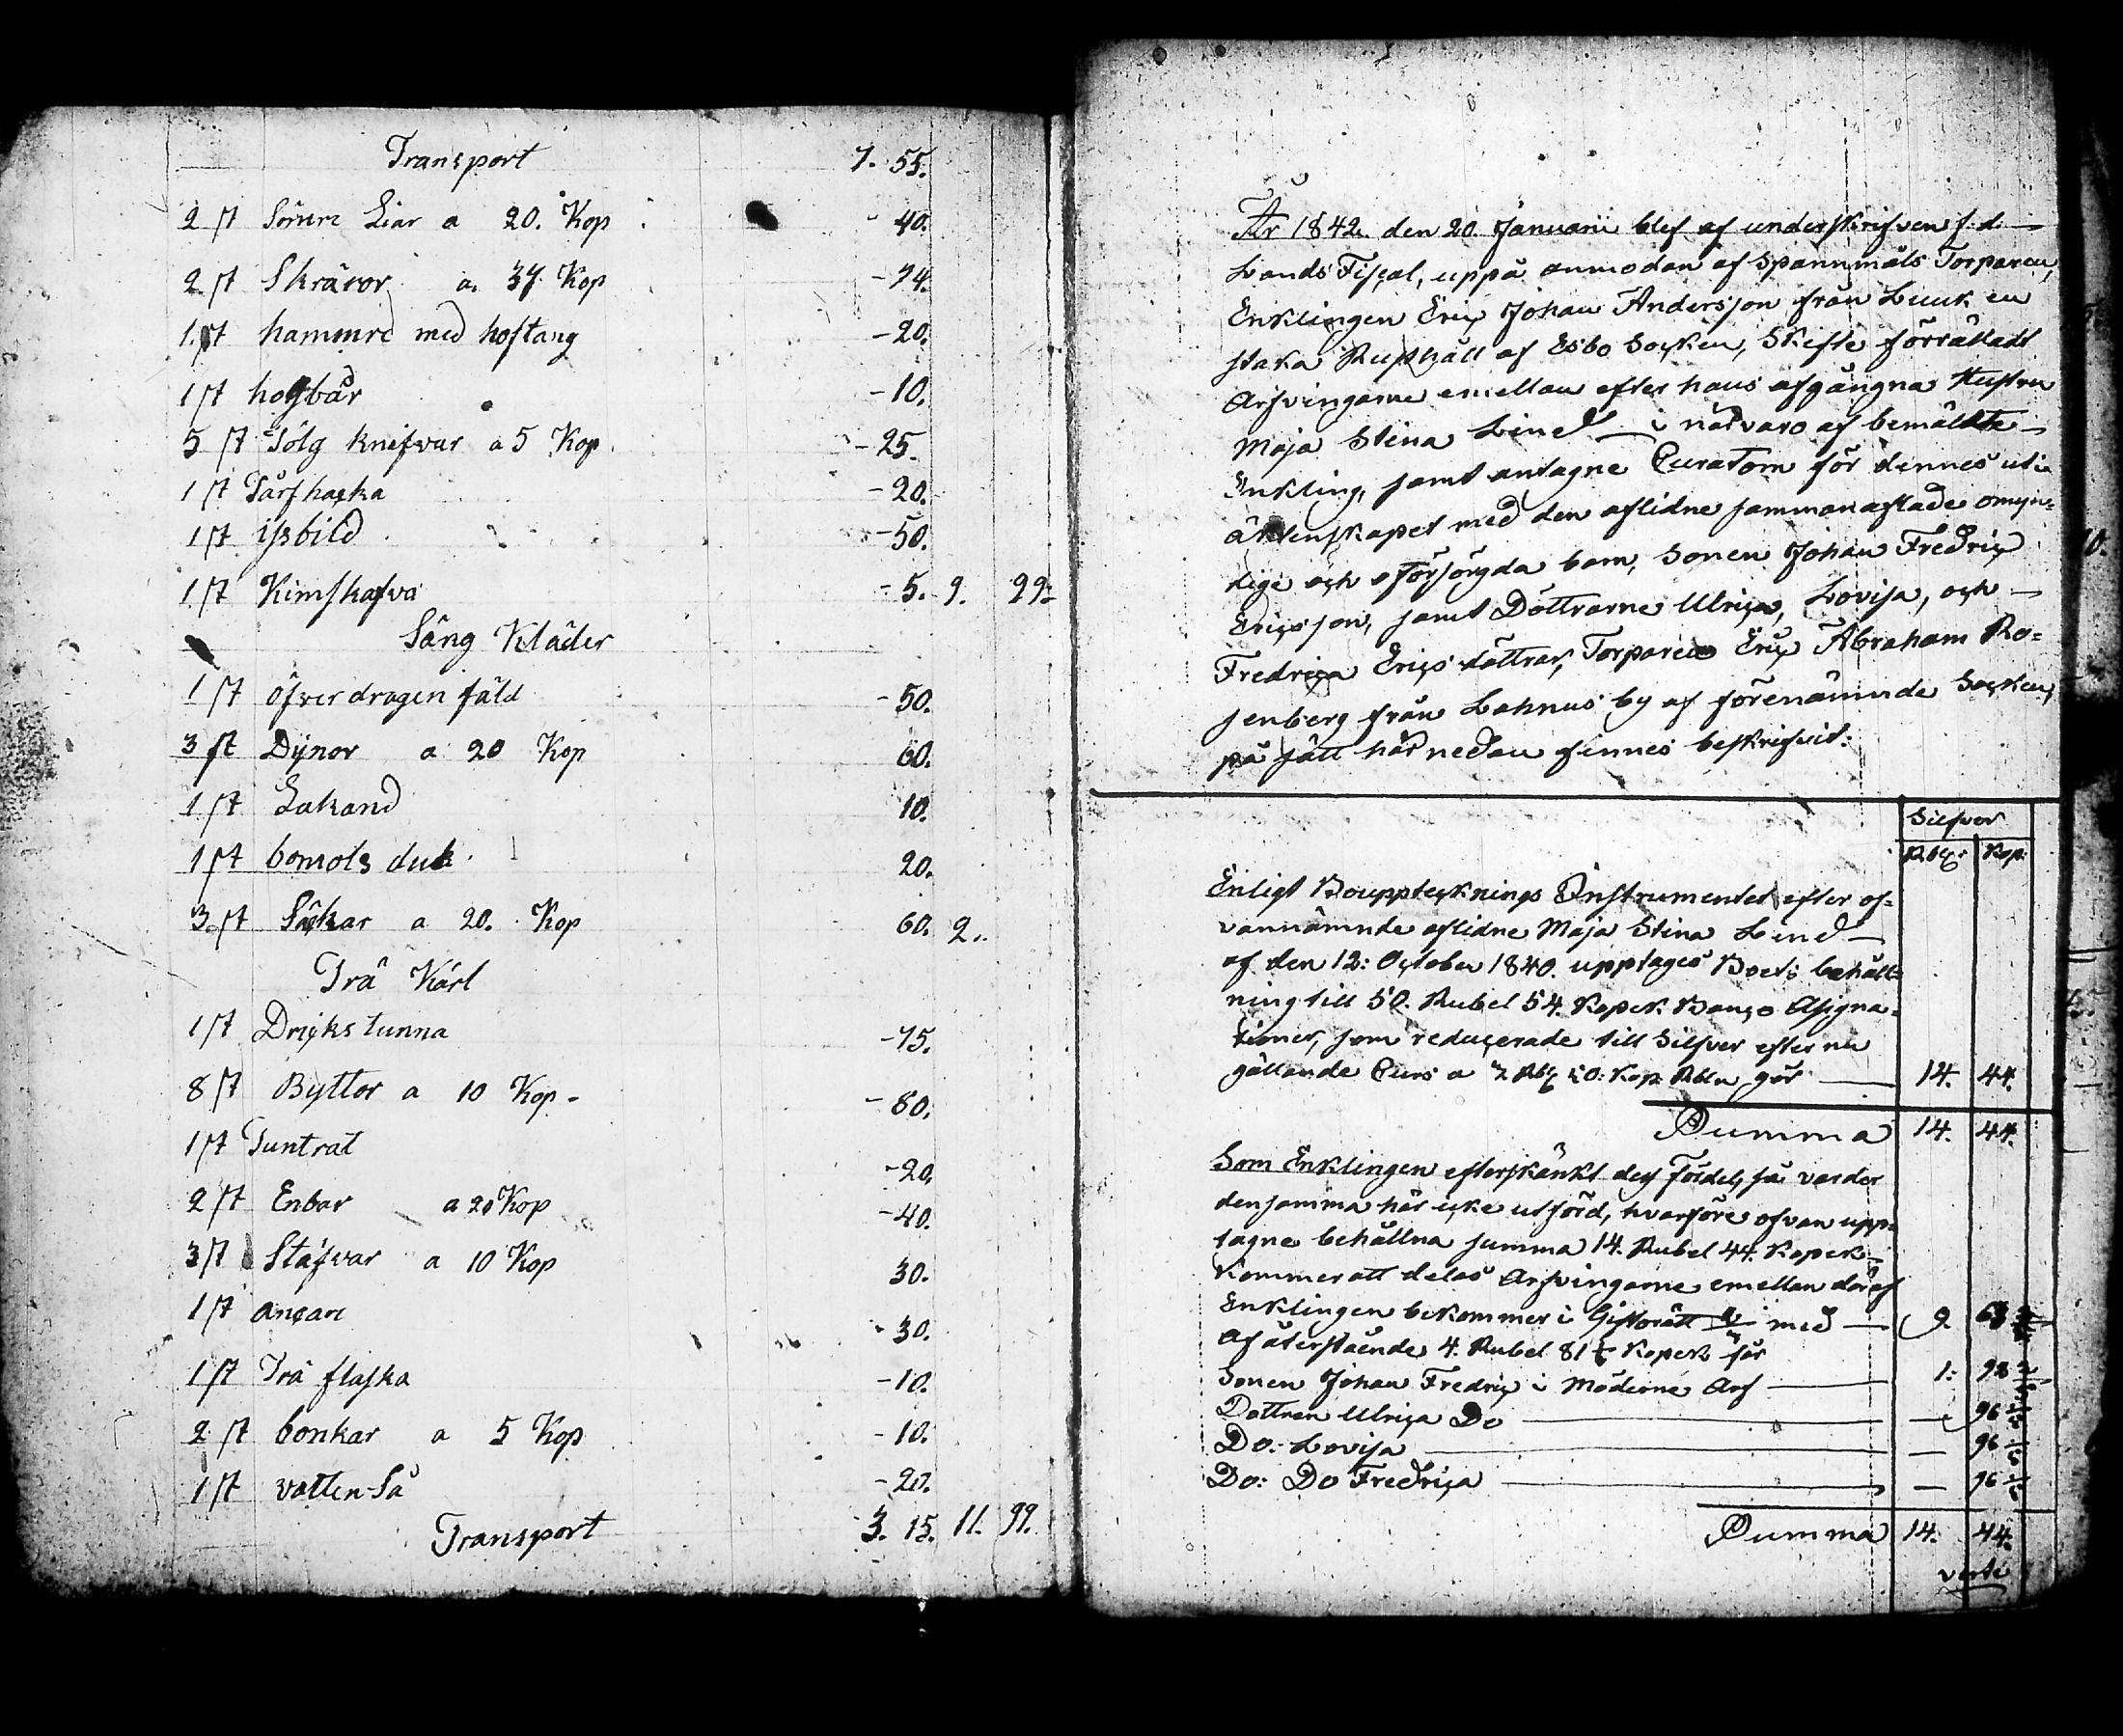 Transport 7. 55.
2 st Sönre Liar a 20. Kop - 40.
2 st Skräror a. 37 Kop - 74.
1 st hammre med hoftang - 20.
1 st hofbår - 10.
5 st Tölg knifvar a 5 Kop - 25.
1 st Tårfhacka - 20.
1 st isbild - 50.
1 st Kimskafva - 5. 9. 99.
Säng Kläder
1 st öfverdragen fäld - 50.
3 st Dÿnor a 20 Kop 60.
1 st Lakand 10.
1 st bomols duk 20.
3 st Säckar a 20. Kop 60. 2..
Trä Kärl
1 st Dricks tunna - 75.
8 st Byttor a 10 Kop - - 80.
1 st Tuntrat - 20.
2 st Enbar a 20 Kop - 40.
3 st Stäfvar a 10 Kop 30.
1 st ancare - 30.
1 st Trä flaska - 10.
2 st bonkar a 5 Kop - 10.
1 st vatten-Så - 20.
Transport 3. 15. 11. 99.
År 1842. den 20. Januarii blef af underskrifven f. d.
Lands Fiscal, uppå anmodan af Spannmåls Torparen,
Enklingen Eric Johan Andersson från Luuk en
staka Rusthåll af Esbo Socken, Skifte förrättadt
Arfvingarne emellan efter hans afgångna Hustru
Maja Stina Lind — i närvaro af bemälte
Enkling, samt antagne Curatorn för dennes uti
äktenskapet med den aflidne sammanaflade omyn=
dige och oförsörgda barn, Sonen Johan Fredric
Ericsson, samt Döttrarne Ulrica, Lovisa, och
Fredrica Erics döttrar, Torparen Eric Abraham Ro=
senberg från Lahnus by af förenämnde Socken,
på sätt här nedan finnes beskrifvit:
Silfver
Rbl: Kop:
Enligt Bouppteknings Instrumentet efter of=
vannämnde aflidne Maja Stina Lind —
af den 12: October 1840. upptages Boets behåll=
ning till 50. Rubel 54. Kopek Banco Assigna=
tioner, som reducerade till Silfver efter nu
gällande Curs a 3 Rbl 50: Kop Rbln gör — 14. 44.
Summa 14. 44.
Som Enklingen efterskänkt dess Fördel, så varder
densamma här icke utförd, hvarföre ofvan upp=
tagne behållna summa 14. Rubel 44. Kopek
kommer att delas Arfvingarne emellan däraf
Enklingen bekommer i Giftorätt med — 9. 62
Af återstående 4. Rubel 81 Kopek får
Sonen Johan Fredric i Möderne Arf — 1: 92
Dottren Ulrica Do — 96
Do: Lovisa — 96
Do: Do Fredrica — 96
Summa 14. 44.
verte